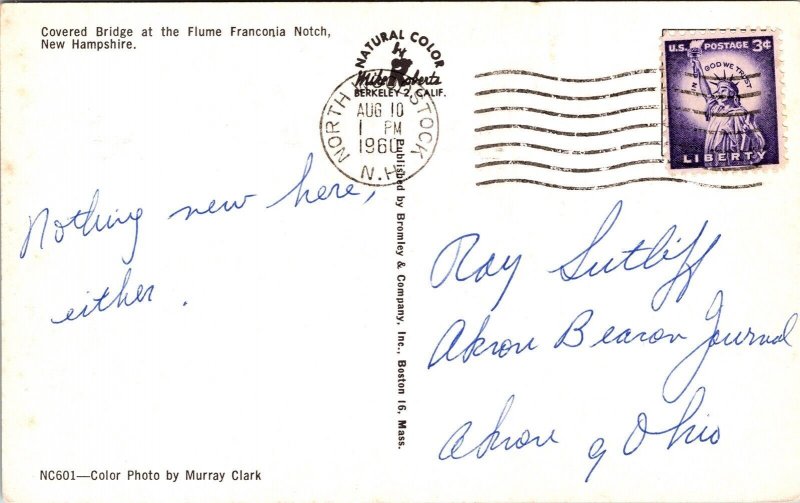 Covered Bridge at the Flume Franconia Notch,
New Hampshire.
NATURAL COLOR
by
Mike Roberts
BERKELEY 2, CALIF.
NORTH WOODSTOCK
AUG 10
1 PM
1960
N.H.
U.S. POSTAGE 3¢
IN GOD WE TRUST
LIBERTY
Nothing new here,
either.
Published by Bromley & Company, Inc., Boston 16, Mass.
Roy Sutliff
Akron Beacon Journal
Akron 9 Ohio
NC601—Color Photo by Murray Clark